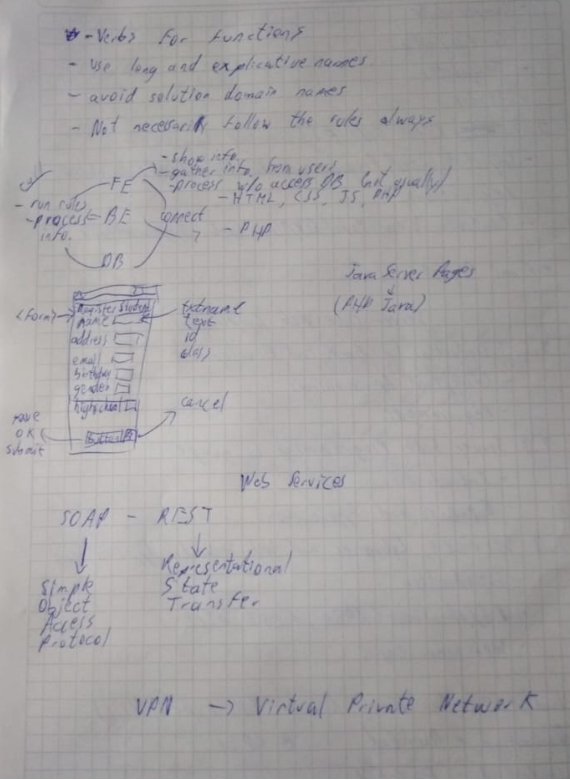 - Verbs for functions
- Use long and explicative names
- avoid solution domain names
- Not necessarily follow the rules always
- show info.
- gather info. from users
- process w/o access DB (not usually)
- HTML, CSS, JS, PHP
FE
- run rules
- process
info.
BE
connect
- PHP
DB
Java Server Pages
(PHP Java)
<form>
Register Student
name
address
email
birthday
gender
highschool
Button
txtname
text
id
class
cancel
save
OK
submit
Web Services
SOAP - REST
Simple
Object
Access
Protocol
Representational
State
Transfer
VPN → Virtual Private Network